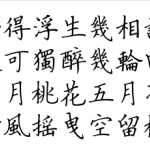 得浮生幾相
可獨醉幾輪
月桃花五月
風摇曳空留